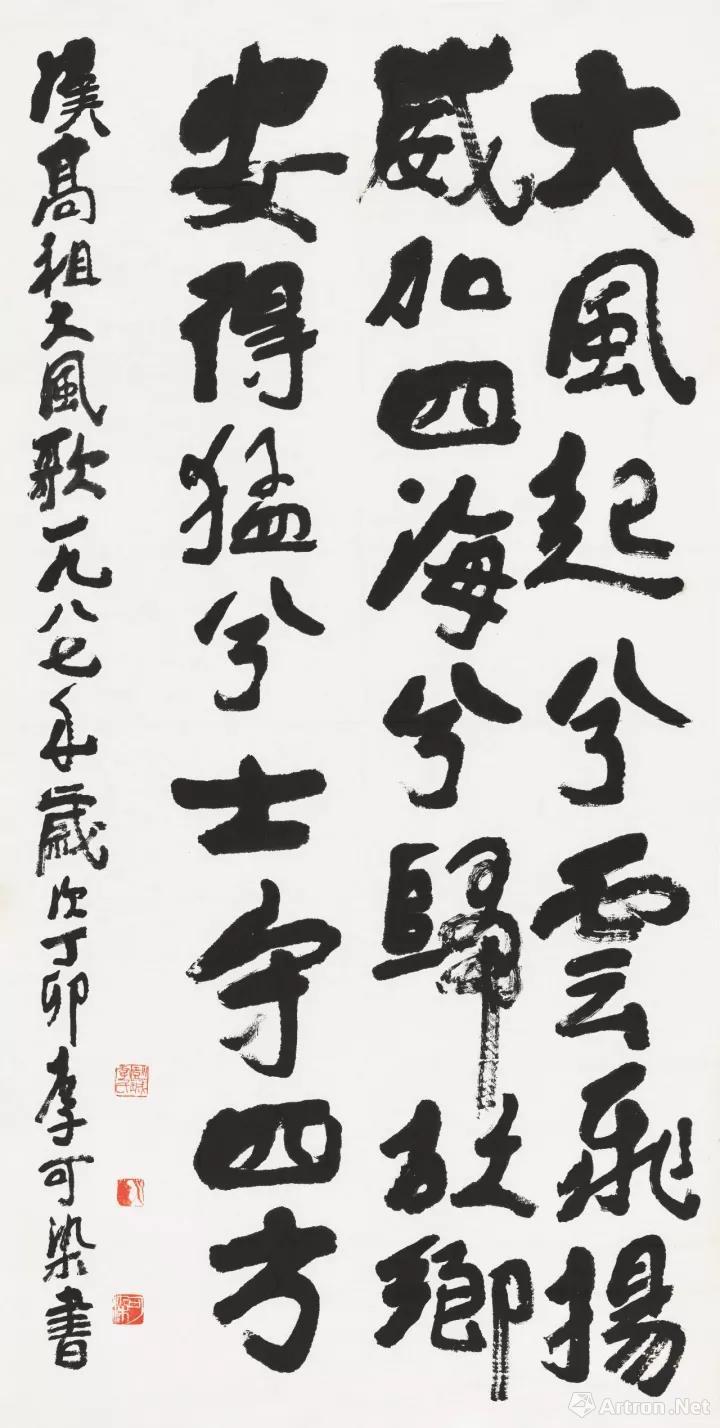 大風起兮雲飛揚
威加四海兮歸故鄉
安得猛兮士守四方
漢高祖大風歌一九八七年歲次丁卯李可染書
Artron.Net